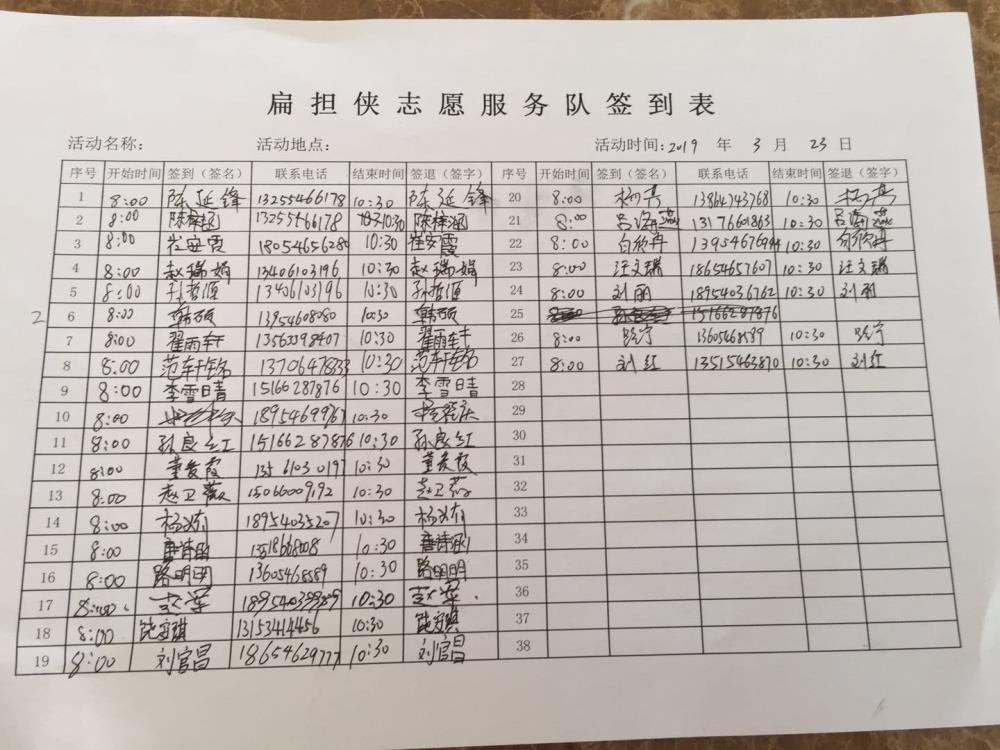 扁担侠志愿服务队签到表
活动名称： 活动地点： 活动时间：2019 年 3 月 23 日
序号 开始时间 签到（签名） 联系电话 结束时间 签退（签字） 序号 开始时间 签到（签名） 联系电话 结束时间 签退（签字）
1 8:00 陈延锋 13255466178 10:30 陈延锋 20 8:00 杨兵 13864743768 10:30 杨兵
2 8:00 陈梓涵 13255466178 10:30 陈梓涵 21 8:00 吕海燕 13176601863 10:30 吕海燕
3 8:00 崔安霞 18054656280 10:30 崔安霞 22 8:00 10:30
4 8:00 赵瑞娟 13406103196 10:30 赵瑞娟 23 8:00 汪文瑞 18654657607 10:30 汪文瑞
5 8:00 孙哲源 13406103196 10:30 孙哲源 24 8:00 刘丽 18954036762 10:30 刘丽
2 6 8:00 韩硕 13954608080 10:30 韩硕 25 15166287876
7 8:00 翟雨轩 13560098407 10:30 翟雨轩 26 8:00 路宁 13605468589 10:30 路宁
8 8:00 范轩锦 13706478333 10:30 范轩锦 27 8:00 刘红 13515463870 10:30 刘红
9 8:00 李雪晴 15166287876 10:30 李雪晴 28
10 8:00 10:30 29
11 8:00 孙良红 15166287876 10:30 孙良红 30
12 8:00 董爱霞 10:30 董爱霞 31
13 8:00 赵卫薇 15066009192 10:30 赵卫薇 32
14 8:00 18954035207 10:30 33
15 8:00 唐诗函 10:30 唐诗函 34
16 8:00 路明明 13605468589 10:30 路明明 35
17 8:00 赵军 10:30 赵军 36
18 8:00 13153414456 10:30 37
19 8:00 刘官昌 18654629777 10:30 刘官昌 38